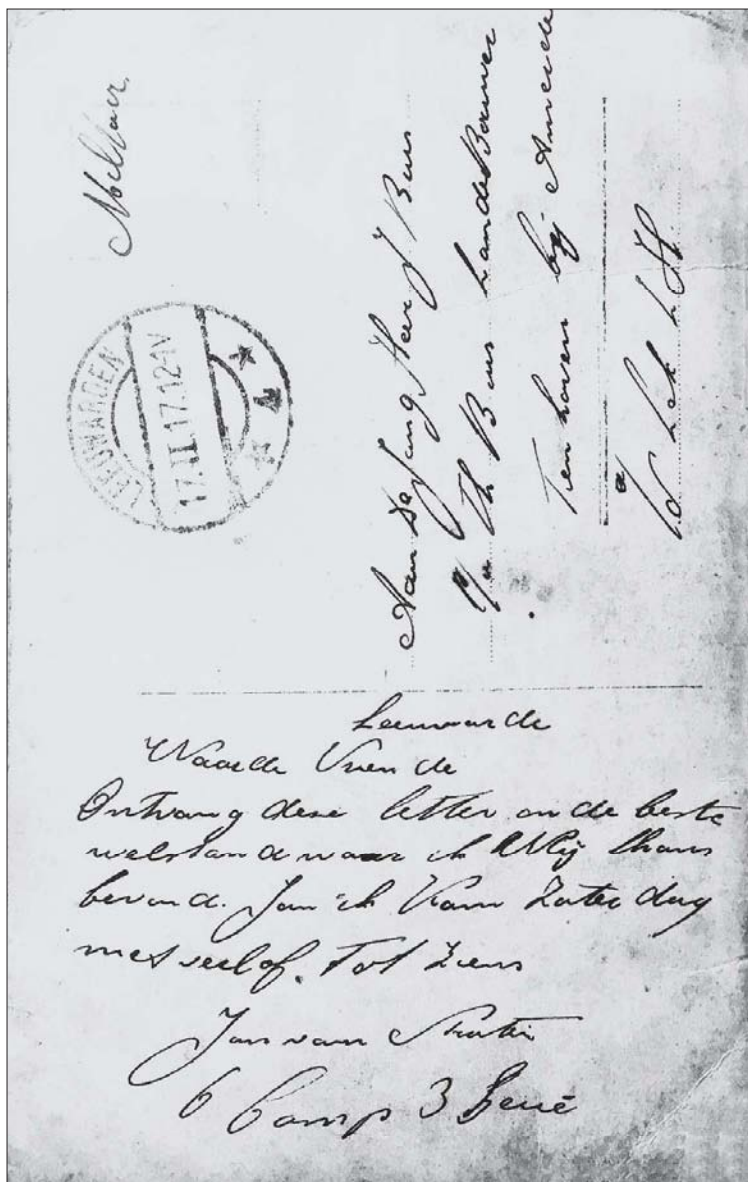 Militair
LEEUWARDEN
17.II.17.12-1V
4
Aan De Jong Heer J Buus
p/a Th Buus Landebouwer
Tienhoven bij Ameide
a/d Lek ZH
Leeuwarde
Waarde Vriende
Ontvang deze letter on de beste
welstand waar ik Mij thans
bevond. Jan ik kom Zaterdag
met verlof. Tot Ziens
Jan van
6 Comp 3